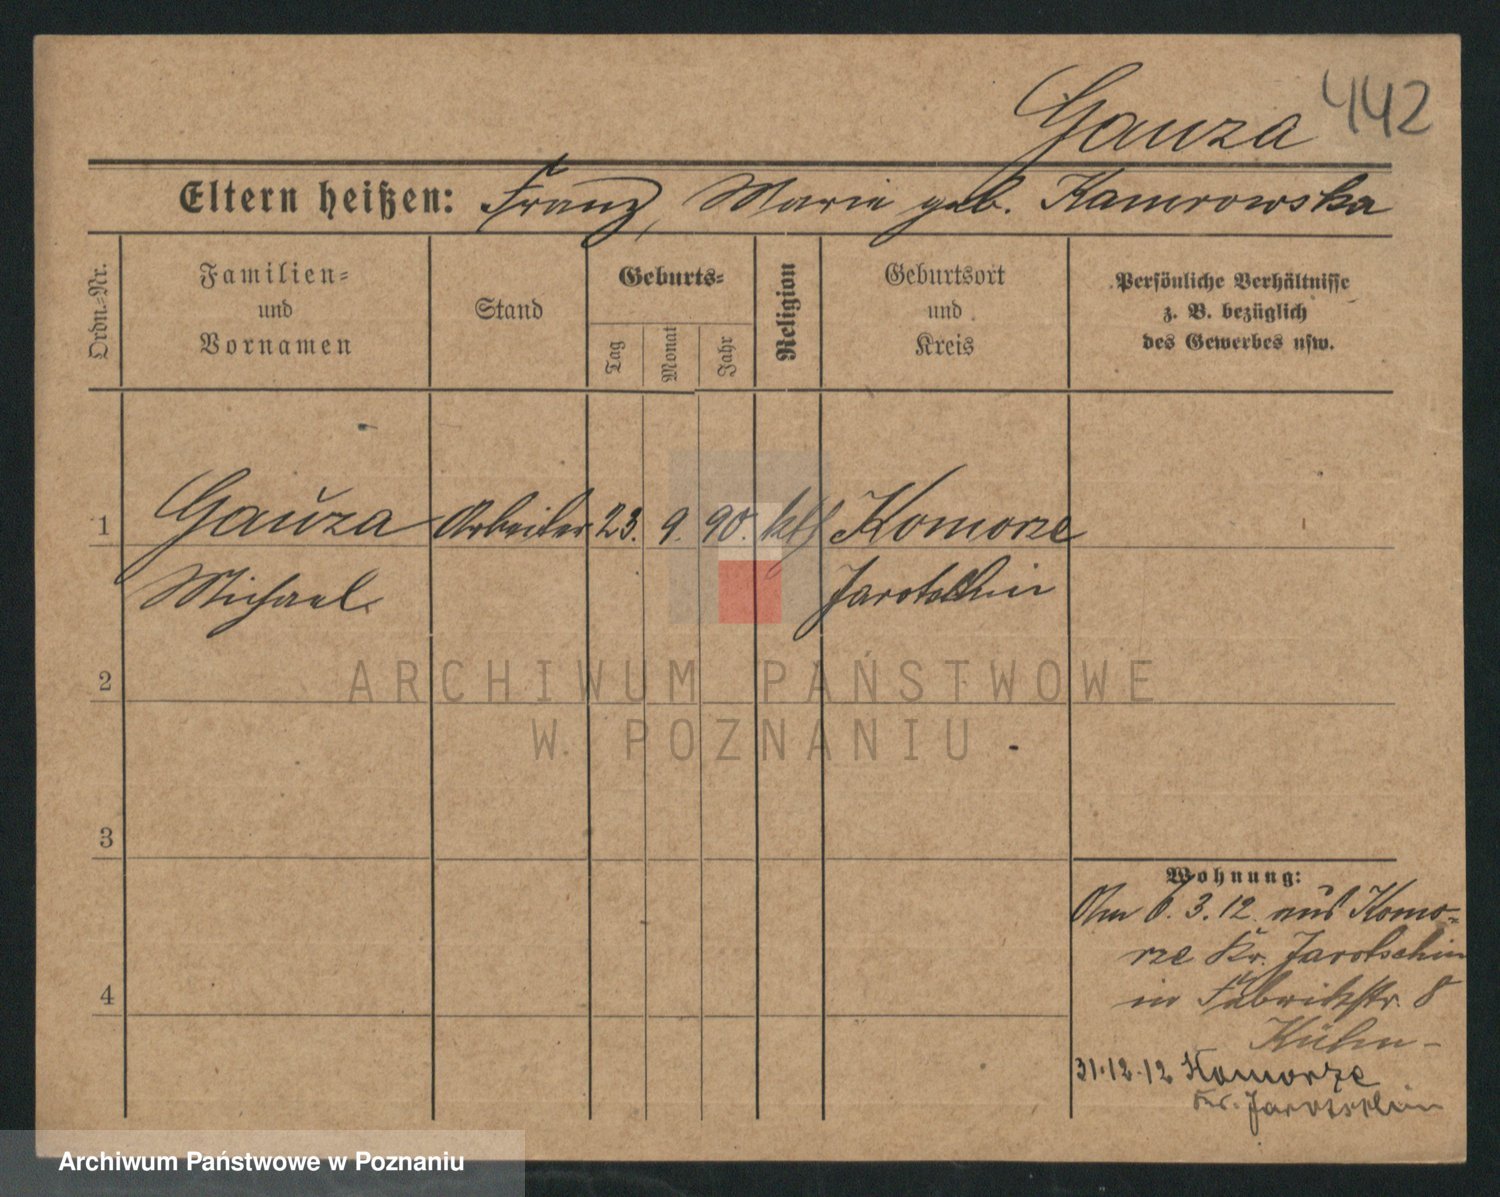 Gauza 442
Eltern heißen: Franz, Marie geb. Kamrowska
Ordn.-Nr.
Familien-
und
Vornamen
Stand
Geburts-
Tag
Monat
Jahr
Religion
Geburtsort
und
Kreis
Persönliche Verhältnisse
z. B. bezüglich
des Gewerbes usw.
1 Gauza Arbeiter 23. 9. 90. kth Komorze
Michael Jarotschin
2
ARCHIWUM PAŃSTWOWE
W POZNANIU
3
4
Wohnung:
Am 6.3.12 aus Komo-
rze Kr. Jarotschin
in Fabrikstr. 8
Kühn-
31.12.12 Komorze
Kr. Jarotschin
Archiwum Państwowe w Poznaniu